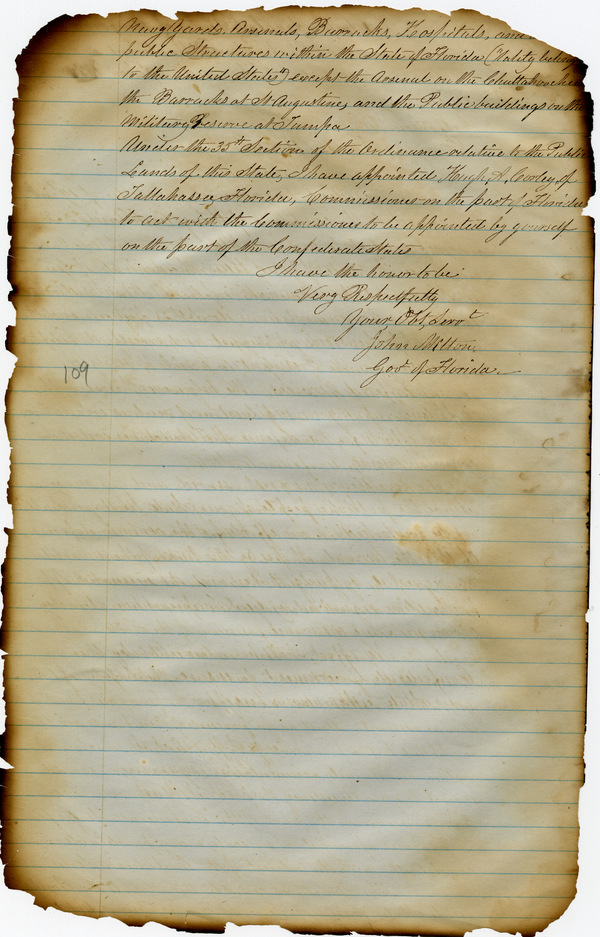 Navy Yards, Arsenals, Barracks, Hospitals, and
public Structures within the State of Florida (lately belong
to the United States") except the Arsenal on the Chattahoochee
the Barracks at St Augustine, and the Public buildings on the
Military Reserve at Tampa
Under the 35th Section of the Ordinance relative to the Public
Lands of this State, I have appointed Hugh A. Corley of
Tallahassee Florida, Commissioner on the part of Florida
to act with the Commissioner to be appointed by yourself
on the part of the Confederate States
I have the honor to be
Very Respectfully
Your, Obt, Servt
John Milton
Govr of Florida
109